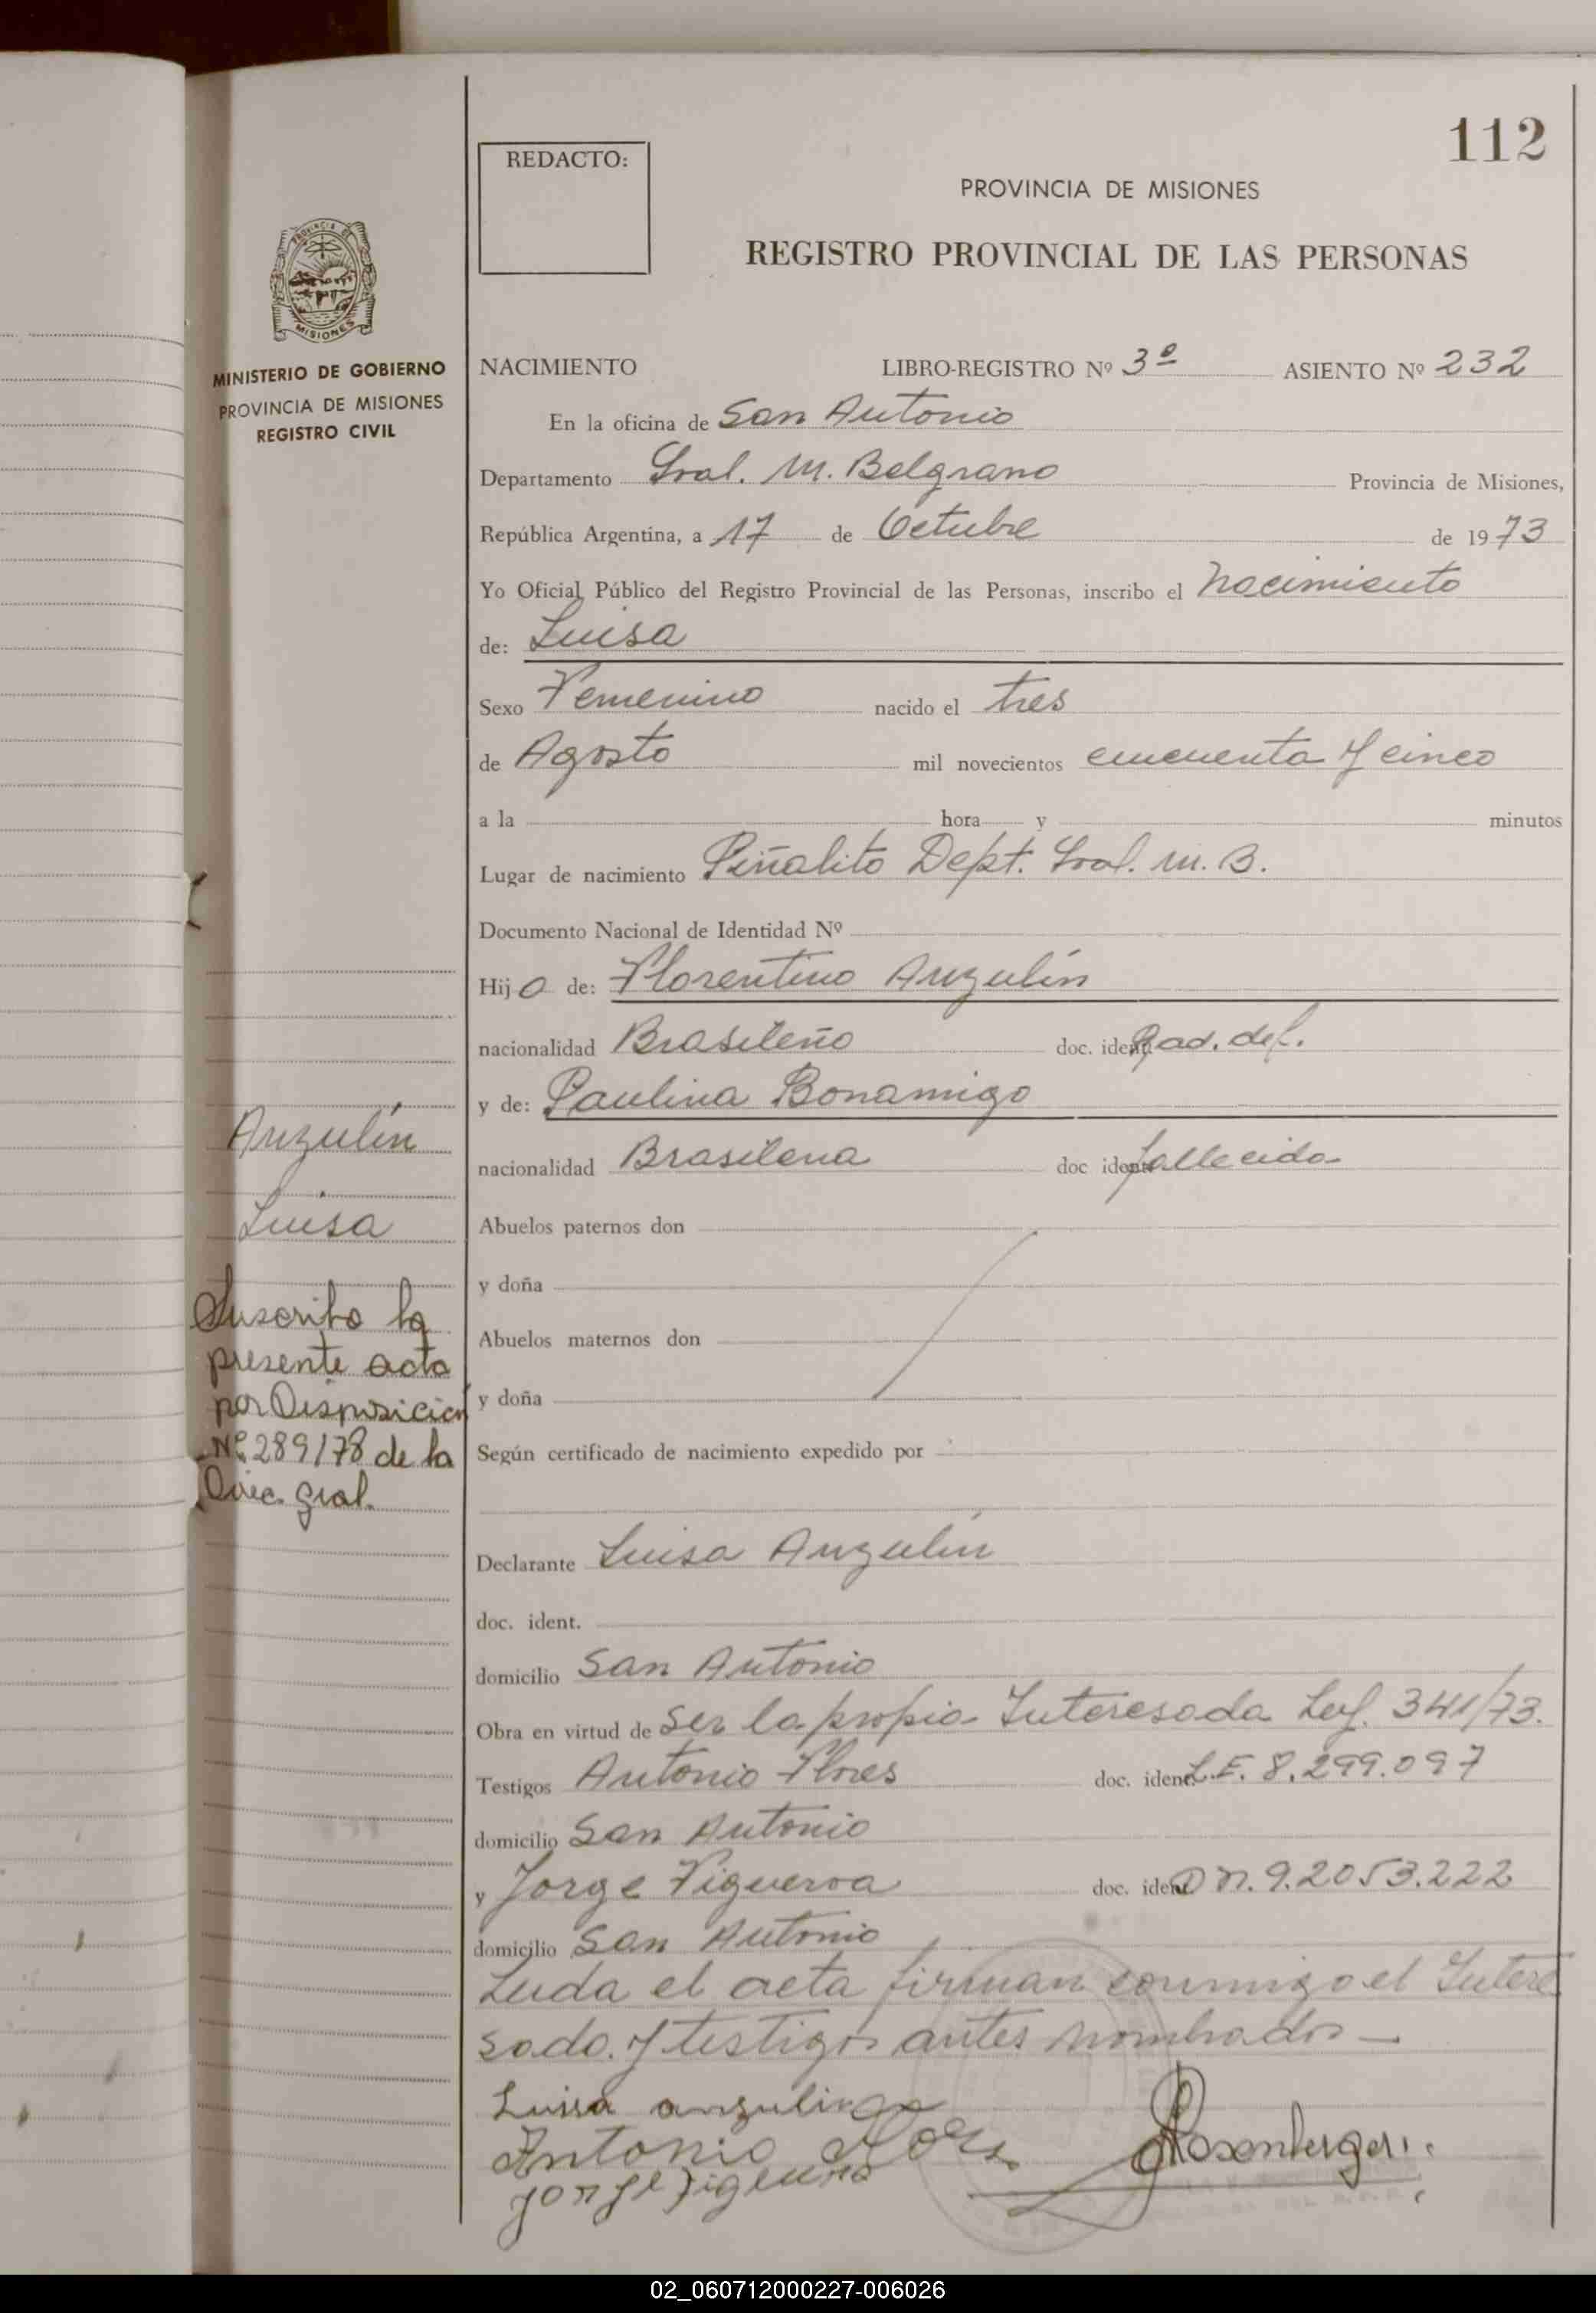 112
REDACTO:
PROVINCIA DE MISIONES
REGISTRO PROVINCIAL DE LAS PERSONAS
PROVINCIA DE
MISIONES
MINISTERIO DE GOBIERNO
PROVINCIA DE MISIONES
REGISTRO CIVIL
NACIMIENTO LIBRO-REGISTRO Nº 3º ASIENTO Nº 232
En la oficina de San Antonio
Departamento Gral. M. Belgrano Provincia de Misiones,
República Argentina, a 17 de Octubre de 1973
Yo Oficial Público del Registro Provincial de las Personas, inscribo el nacimiento
de: Luisa
Sexo Femenino nacido el tres
de Agosto mil novecientos cincuenta y cinco
a la hora y minutos
Lugar de nacimiento Piñalito Dept. Gral. M. B.
Documento Nacional de Identidad Nº
Hija de: Florentino Anzulín
nacionalidad Brasileño doc. ident. Rad. def.
y de: Paulina Bonamigo
nacionalidad Brasilena doc ident. fallecida
Abuelos paternos don
y doña
Abuelos maternos don
y doña
Según certificado de nacimiento expedido por
Declarante Luisa Anzulín
doc. ident.
domicilio San Antonio
Obra en virtud de Ser la propia Interesada Ley. 341/73.
Testigos Antonio Flores doc. ident. L.E. 8.299.097
domicilio San Antonio
y Jorge Figueroa doc. ident. D n.9.2053.222
domicilio San Antonio
Leida el acta firman conmigo el Intere
sado. y testigos antes nombrados —
Luisa anzulin
Antonio Flores
Jorge Figueroa
Rosenberger
Anzulín
Luisa
Suscrito la
presente acta
por Disposicion
Nº 289/78 de la
Direc. gral.
02_060712000227-006026